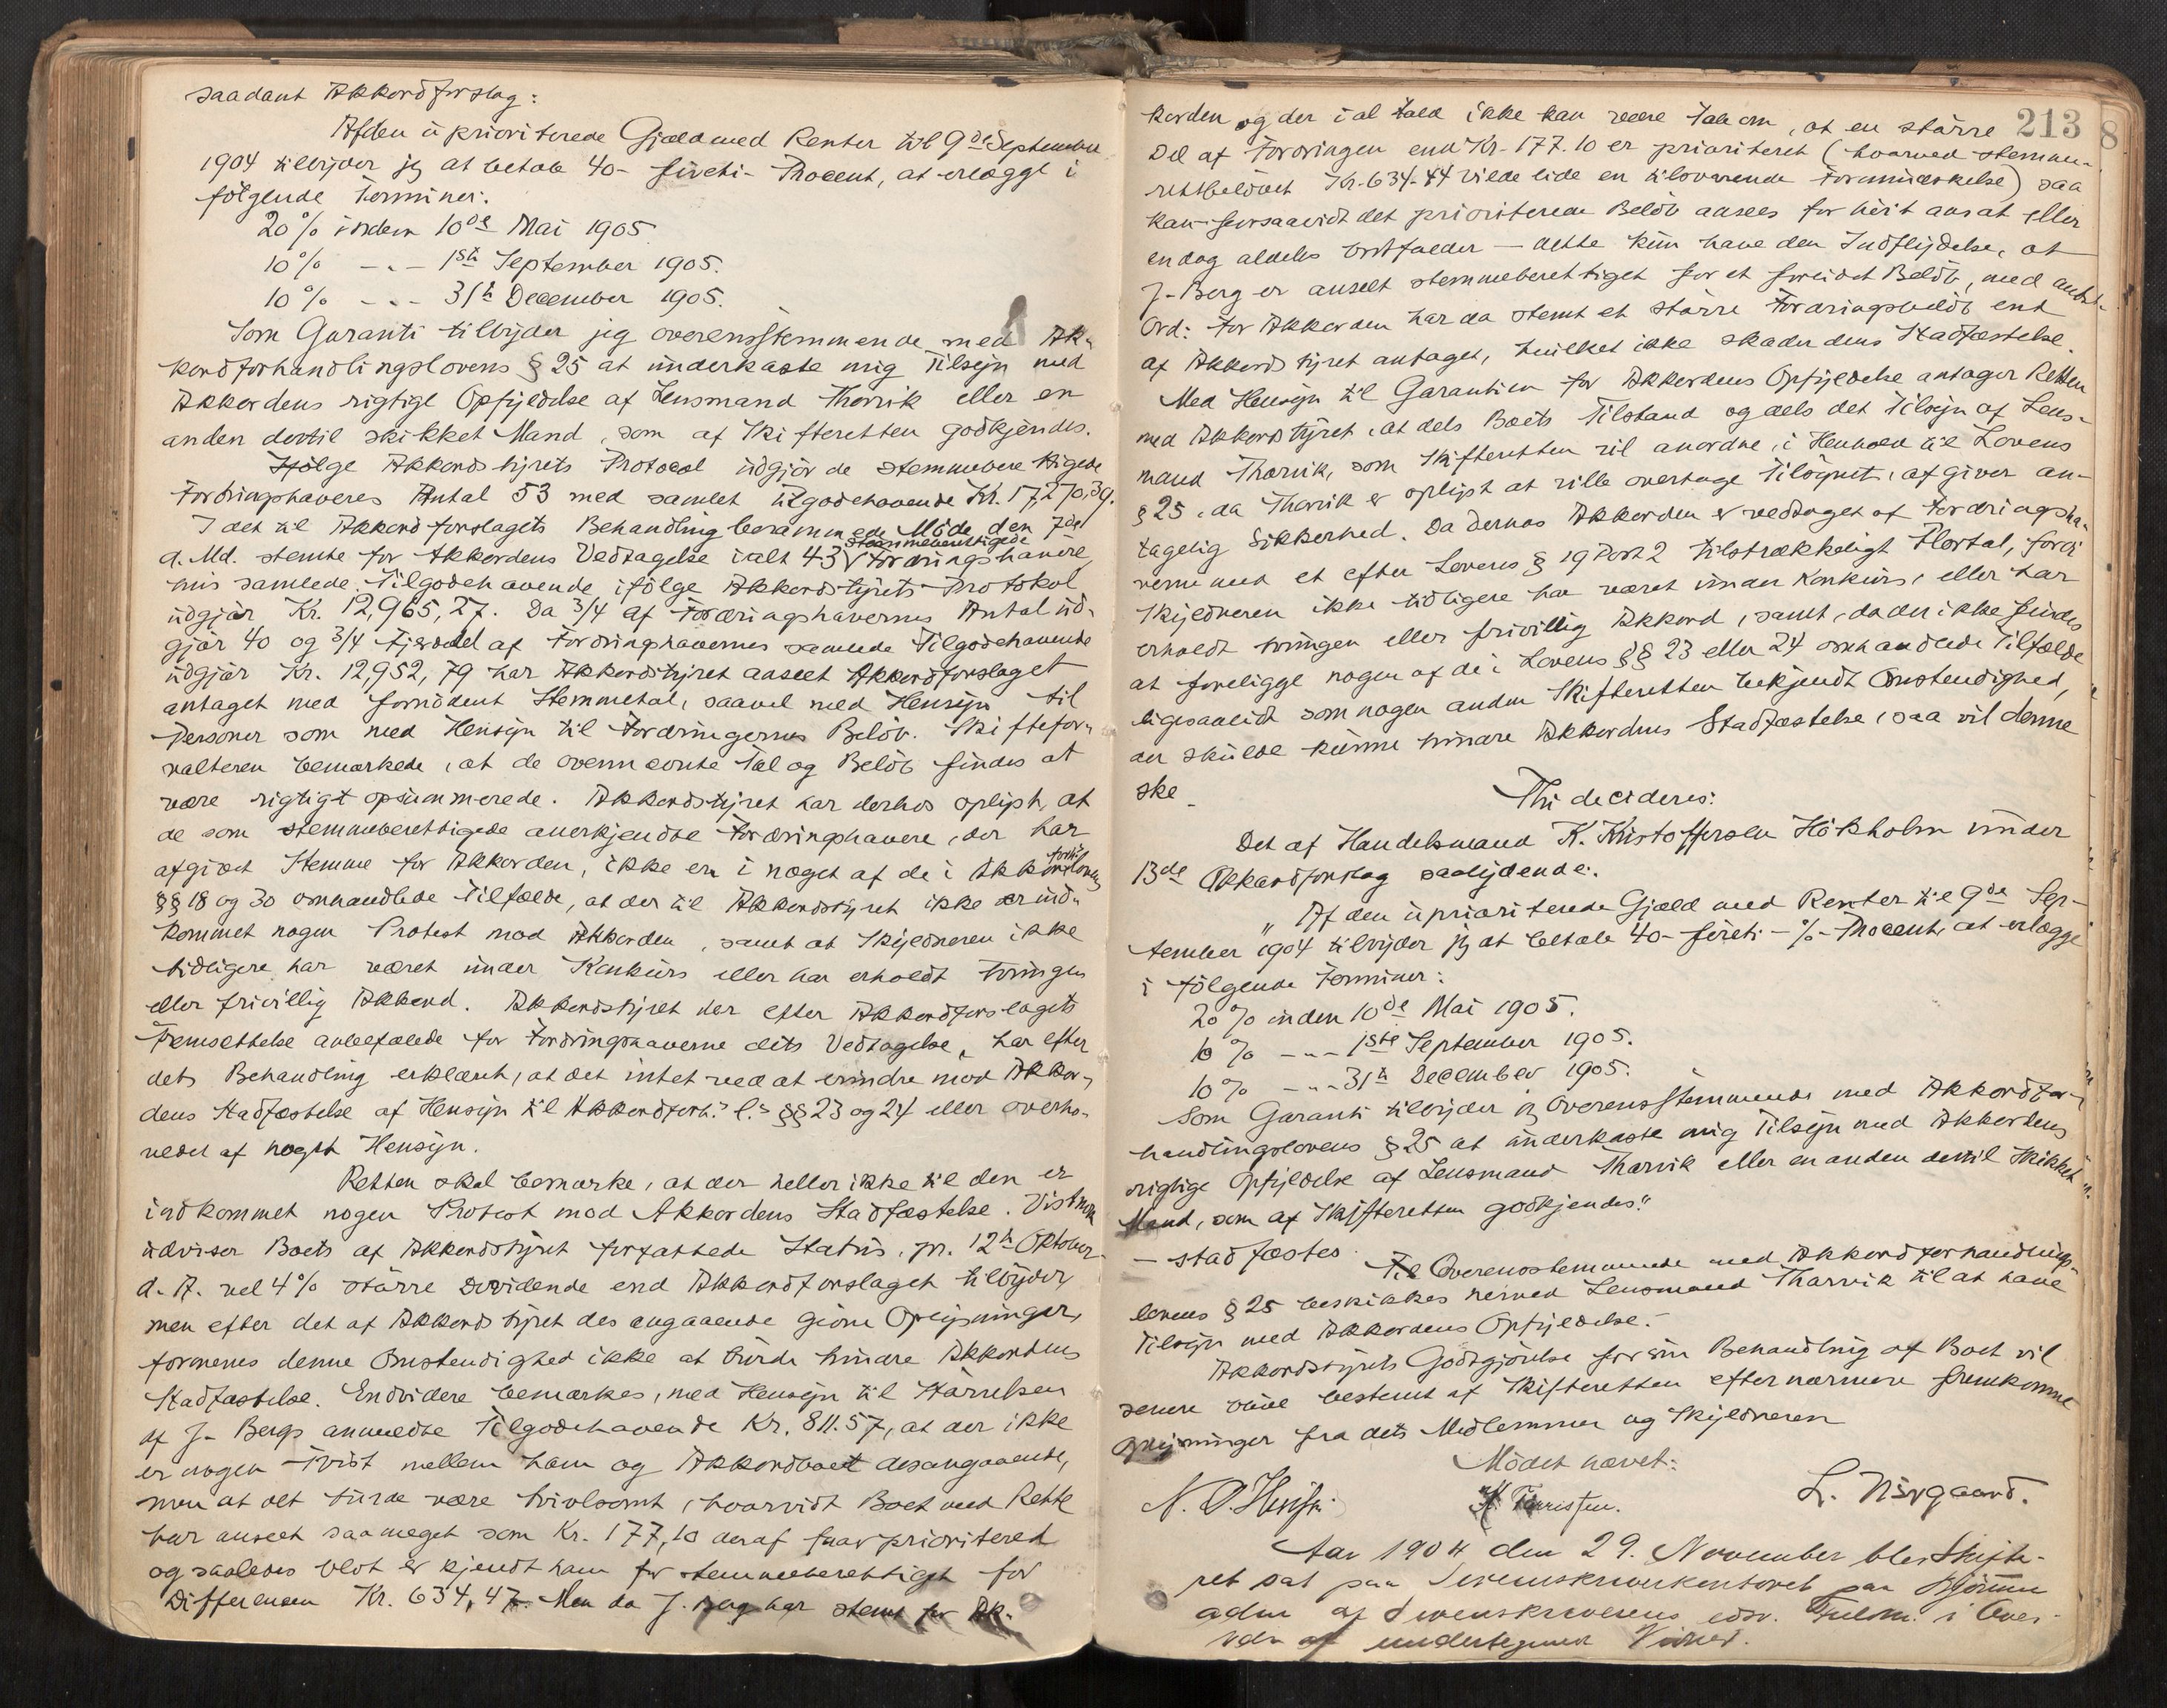 saadant Akkordforslag:
Af den upriorterede Gjæld med Renter til 9de September
1904 tilbyder jeg at betale 40- firti- Procent, at erlægge i
følgende Terminer:
20% inden 10de Mai 1905
10% -"- 1ste September 1905.
10% -"- 31te December 1905.
Som Garanti tilbyder jeg overensstemmende med Ak-
kordforhandlingslovens § 25 at underkaste mig Tilsyn med
Akkordens rigtige Opfyldelse af Lensmand Tharvik eller en
anden dertil skikket Mand, som af Skifteretten godkjendes.
Ifølge Akkordstyrets Protocol udgjør de stemmeberettigede
Fordringshaveres Antal 53 med samlet Tilgodehavende Kr. 17,270,39.
I det til Akkordforslagets Behandling berammede Møde den 7de
d. Md. stemte for Akkordens Vedtagelse ialt 43 stemmeberettigede Fordringshavere,
hvis samlede Tilgodehavende ifølge Akkordstyrets Protokol
udgjør Kr. 12,965,27. Da 3/4 af Fordringshavernes Antal ud-
gjør 40 og 3/4 Fjerdedel af Fordringshavernes samlede Tilgodehavende
udgjør Kr. 12,952,79 har Akkordstyret anseet Akkordforslaget
antaget med fornødent Stemmetal, saavel med Hensyn til
Personer som med Hensyn til Fordringernes Beløb. Skiftefor-
valteren bemærkede, at de ovennævnte Tal og Beløb findes at
være rigtigt opsummerede. Akkordstyret har derhos oplyst, at
de som stemmeberettigede anerkjendte Fordringshavere, der har
afgivet Stemme for Akkorden, ikke er i noget af de i Akkordforh.lovens
§§ 18 og 30 omhandlede Tilfælde, at der til Akkordstyret ikke er ind-
kommet nogen Protest mod Akkorden, samt at Skyldneren ikke
tidligere har været under Konkurs eller har erholdt tvungen
eller frivillig Akkord. Akkordstyret har efter Akkordforslagets
Fremsættelse anbefalede for Fordringshaverne dets Vedtagelse, har efter
dets Behandling erklæret, at det intet ved at erindre mod Akkor-
dens Stadfæstelse af Hensyn til Akkordforh.s l.s §§ 23 og 24 eller overho-
vedet af noget Hensyn.
Retten skal bemærke, at der heller ikke til den er
indkommet nogen Protest mod Akkordens Stadfæstelse. Vistnok
udviser Boets af Akkordstyret forfattede Status, pr. 12te Oktober
d. A. vel 4% større Dividende end Akkordforslaget tilbyder,
men efter det af Akkordstyret desangaaende givne Oplysninger,
formenes denne Omstendighed ikke at burde hindre Akkordens
Stadfæstelse. Endvidere bemærkes, med Hensyn til Størrelsen
af J. Bergs anmeldte Tilgodehavende Kr. 811.57, at der ikke
er nogen Tvist mellem ham og Akkordboet desangaaende,
men at det turde være tvivlsomt, hvorvidt Boet med Rette
har anseet saameget som Kr. 177,10 deraf for prioriteret
og saaledes blot er kjendt ham for stemmeberettiget for
Differencen Kr. 634,47. Men da J. Berg har stemt for Ak-
213
8
korden og der i al Fald ikke kan være Tale om, at en større
Del af Fordringen end Kr. 177.10 er prioriteret (hvorved stemme-
retsbeløbet Kr. 634.44 vilde lide en tilsvarende Formindskelse) saa
kan- forsaavidt det prioriterede Beløb ansees for høit ansat eller
endog aldeles bortfalder – dette kun have den Indflydelse, at
J. Berg er anseet stemmeberettiget for et forlidet Beløb, med andre
Ord: for Akkorden har da stemt et større Fordringsbeløb end
af Akkordstyret antaget, hvilket ikke skader dens Stadfæstelse.
Med Hensyn til Garantien for Akkordens Opfyldelse antager Retten
med Akkordstyret, at dels Boets Tilstand og dels det Tilsyn af Lens-
mand Tharvik, som Skifteretten vil anordne, i Henhold til Lovens
§ 25, da Tharvik er oplyst at ville overtage Tilsynet, afgiver an-
tagelig Sikkerhed. Da dernæst Akkorden er vedtaget af Fordringsha-
verne med et efter Lovens § 19 Post 2 tilstrækkeligt Flertal, fordi
Skyldneren ikke tidligere har været under Konkurs, eller har
erholdt tvungen eller frivillig Akkord, samt, da der ikke findes
at foreligge nogen af de i Lovens §§ 23 eller 24 omhandlede Tilfælde
ligesaalidt som nogen anden Skifteretten bekjendt Omstendighed,
der skulde kunne hindre Akkordens Stadfæstelse, saa vil denne
ske.
Thi decideres:
Det af Handelsmand K. Kristoffersen Hökholm under
13de Akkordforslag saalydende:
"Af den uprioriterede Gjæld med Renter til 9de Sep-
tember 1904 tilbyder jeg at betale 40- firti- %- Procent, at erlægge
i følgende Terminer:
20% inden 10de Mai 1905.
10% -"- 1ste September 1905.
10% -"- 31te December 1905.
Som Garanti tilbyder jeg Overensstemmende med Akkordfor-
handlingslovens § 25 at underkaste mig Tilsyn med Akkordens
rigtige Opfyldelse af Lensmand Tharvik eller en anden dertil skikket
Mand, som af Skifteretten godkjendes."
– stadfæstes.
Til Overensstemmende med Akkordforhandlings-
lovens § 25 beskikkes herved Lensmand Tharvik til at have
Tilsyn med Akkordens Opfyldelse.
Akkordstyrets Godtgjørelse for sin Behandling af Boet vil
senere blive bestemt af Skifteretten efter nærmere fremkomne
Oplysninger fra dets Medlemmer og Skyldneren
Mødet hævet:
L. Nørgaard.
Aar 1904 den 29. November blev Skifte-
ret sat paa Sorenskriverkontoret paa
af Sorenskriverens edsv. Fuldm. i Over-
vær af undertegnede Vidner.